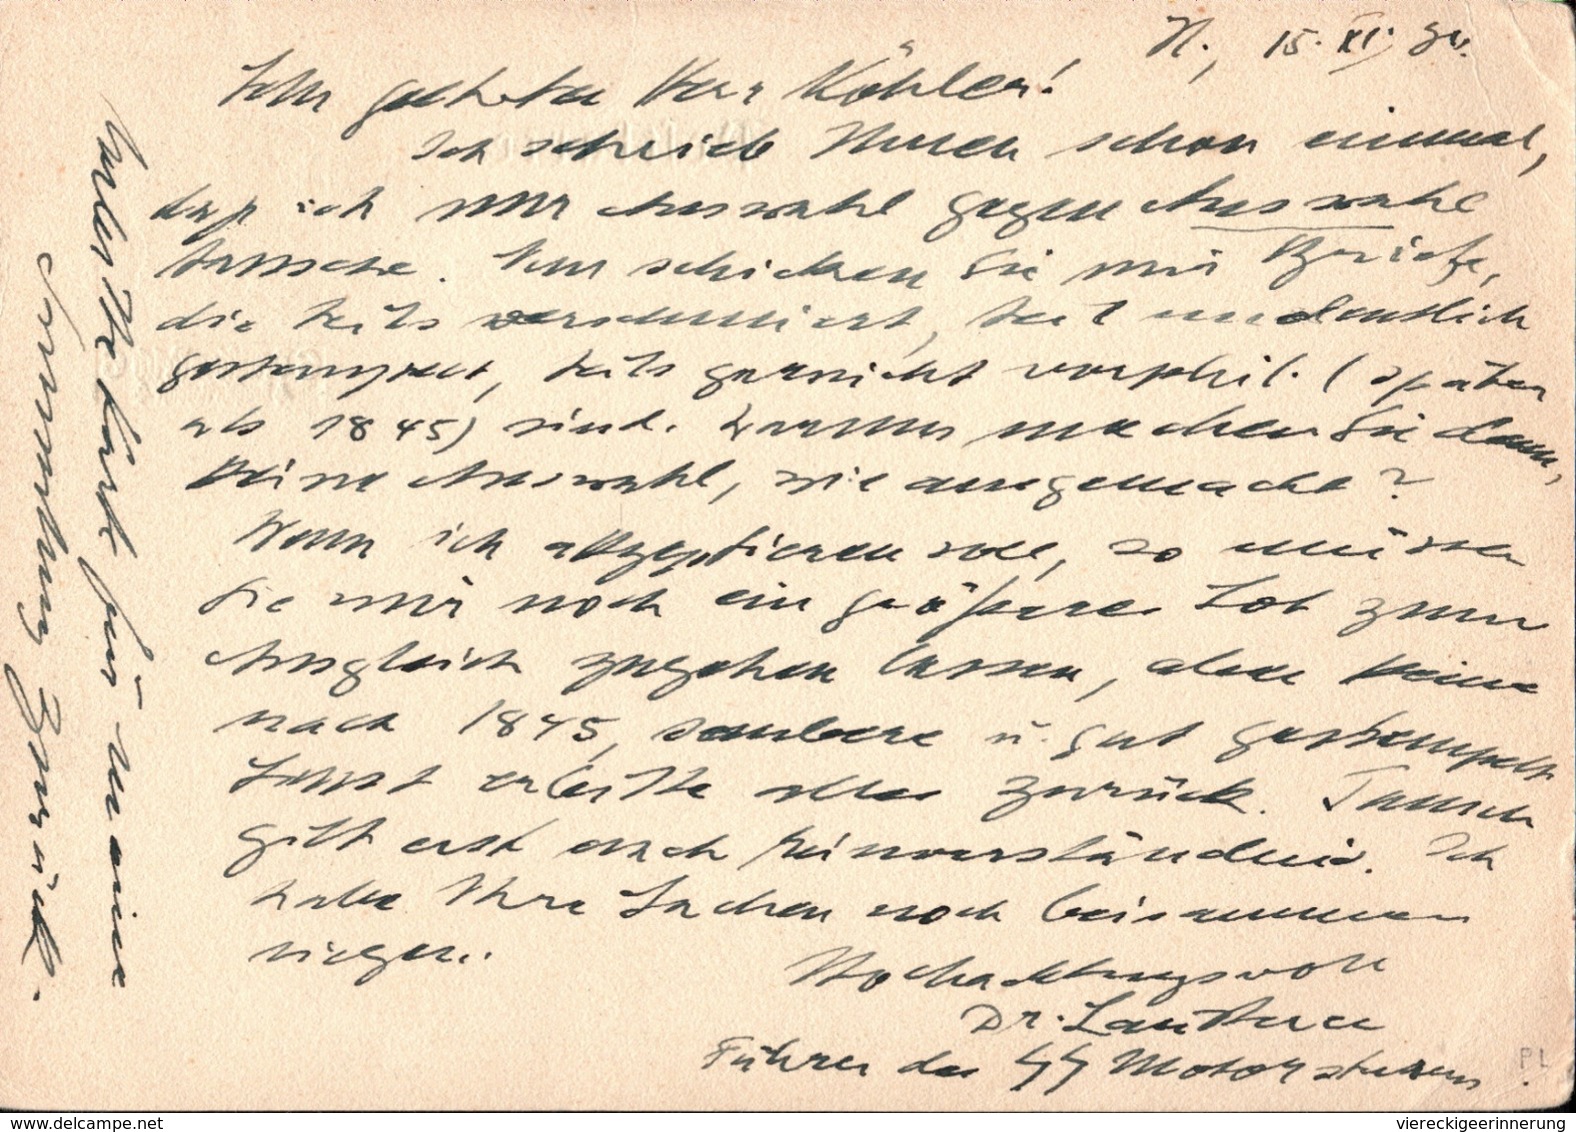 N., 15. XI. 34.
Sehr geehrter Herr Köhler!
Ich schrieb Ihnen schon einmal,
daß ich nur Auswahl gegen Auswahl
tausche. Nun schicken Sie mir Briefe,
die teils verschmiert, teils undeutlich
gestempelt, teils garnicht vorphil. (später
als 1845) sind. Warum machen Sie denn
keine Auswahl, wie ausgemacht?
Wenn ich akzeptieren soll, so müssen
Sie mir noch ein größeres Los zum
Ausgleich zugehen lassen, aber keine
nach 1845, saubere u. gut gestempelt
Sonst erbitte alles zurück. Tausch
gilt erst nach Einverständnis. Ich
habe Ihre Sachen noch beisammen
liegen.
Hochachtungsvoll
Dr.
Führer des SS Motorsturms
PL
oder Sie für meine
Sammlung zurück.
www.delcampe.net
viereckigeerinnerung